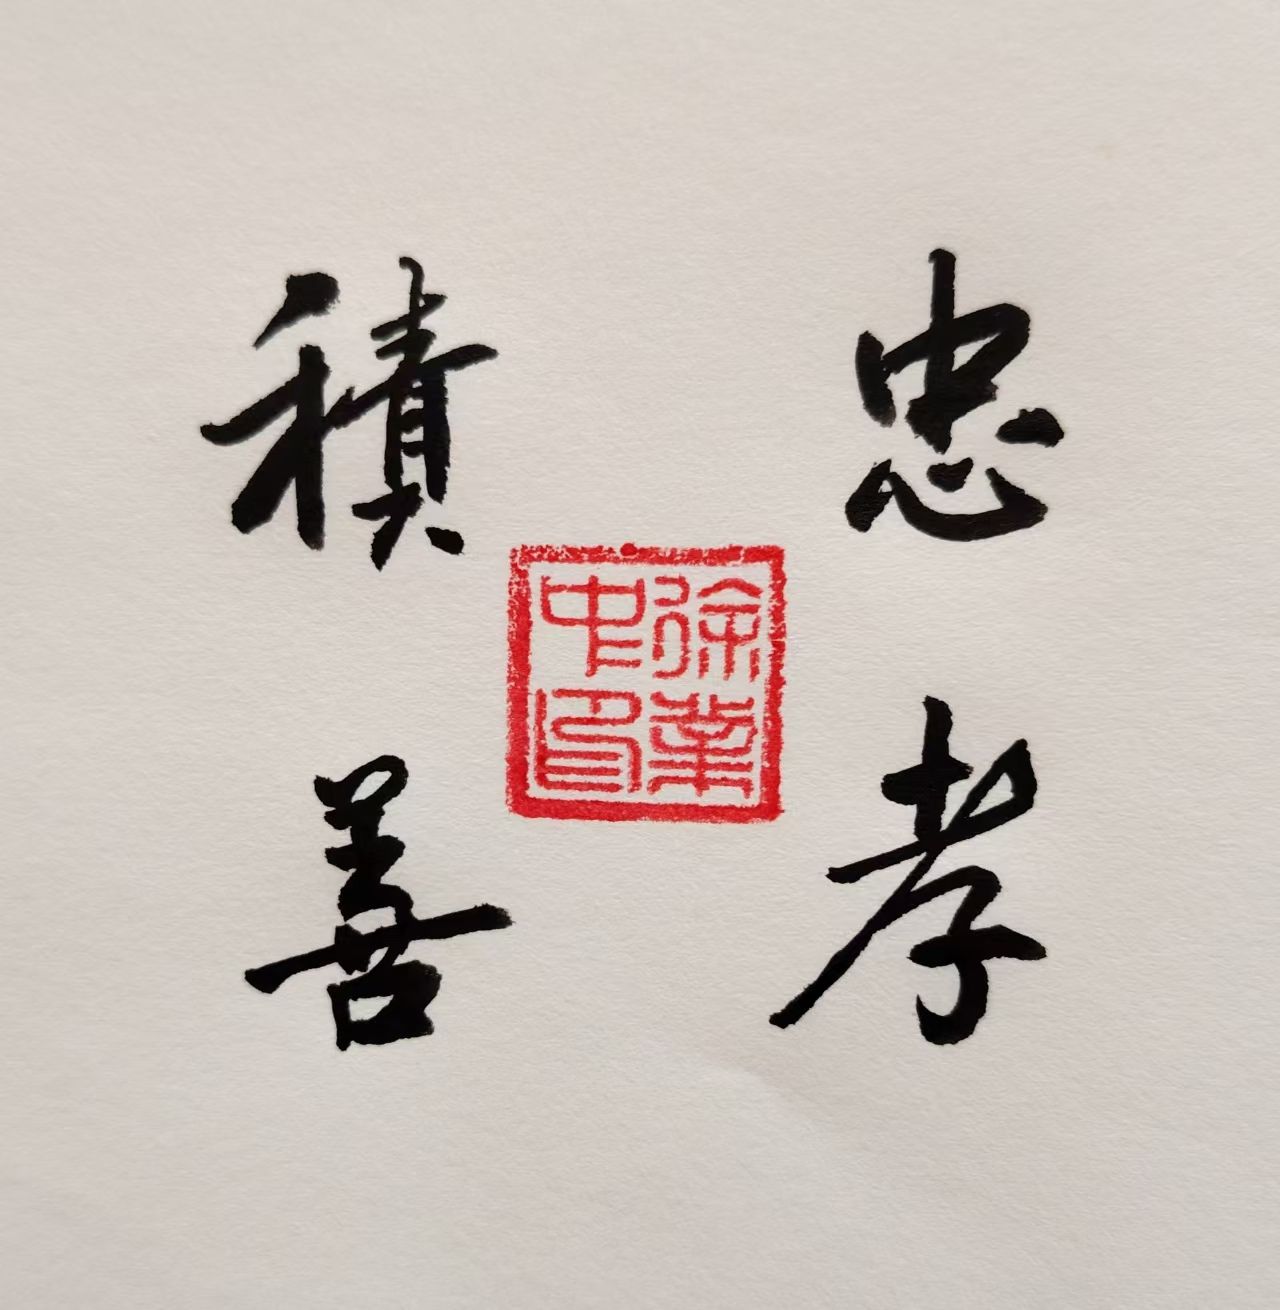 忠孝
積善
徐業
中印